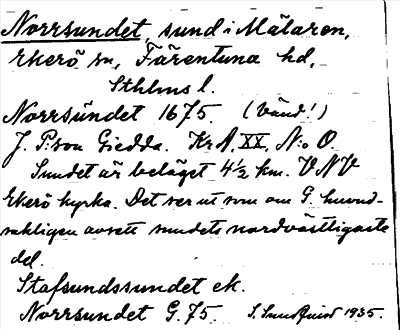 Norrsundet, sund i Mälaren,
Ekerö sn, Färentuna hd,
Sthlms l.
Norrsúndet 1675. (Vänd!)
J. P:son Giedda. Kr A, XX, N:o O.
Sundet är beläget 4½ km. VNV
Ekerö kyrka. Det ser ut som om G. huvud-
sakligen avsett sundets nordvästligaste
del.
Stafsundssundet ek.
Norrsundet G. 75. S. Sundquist 1935.